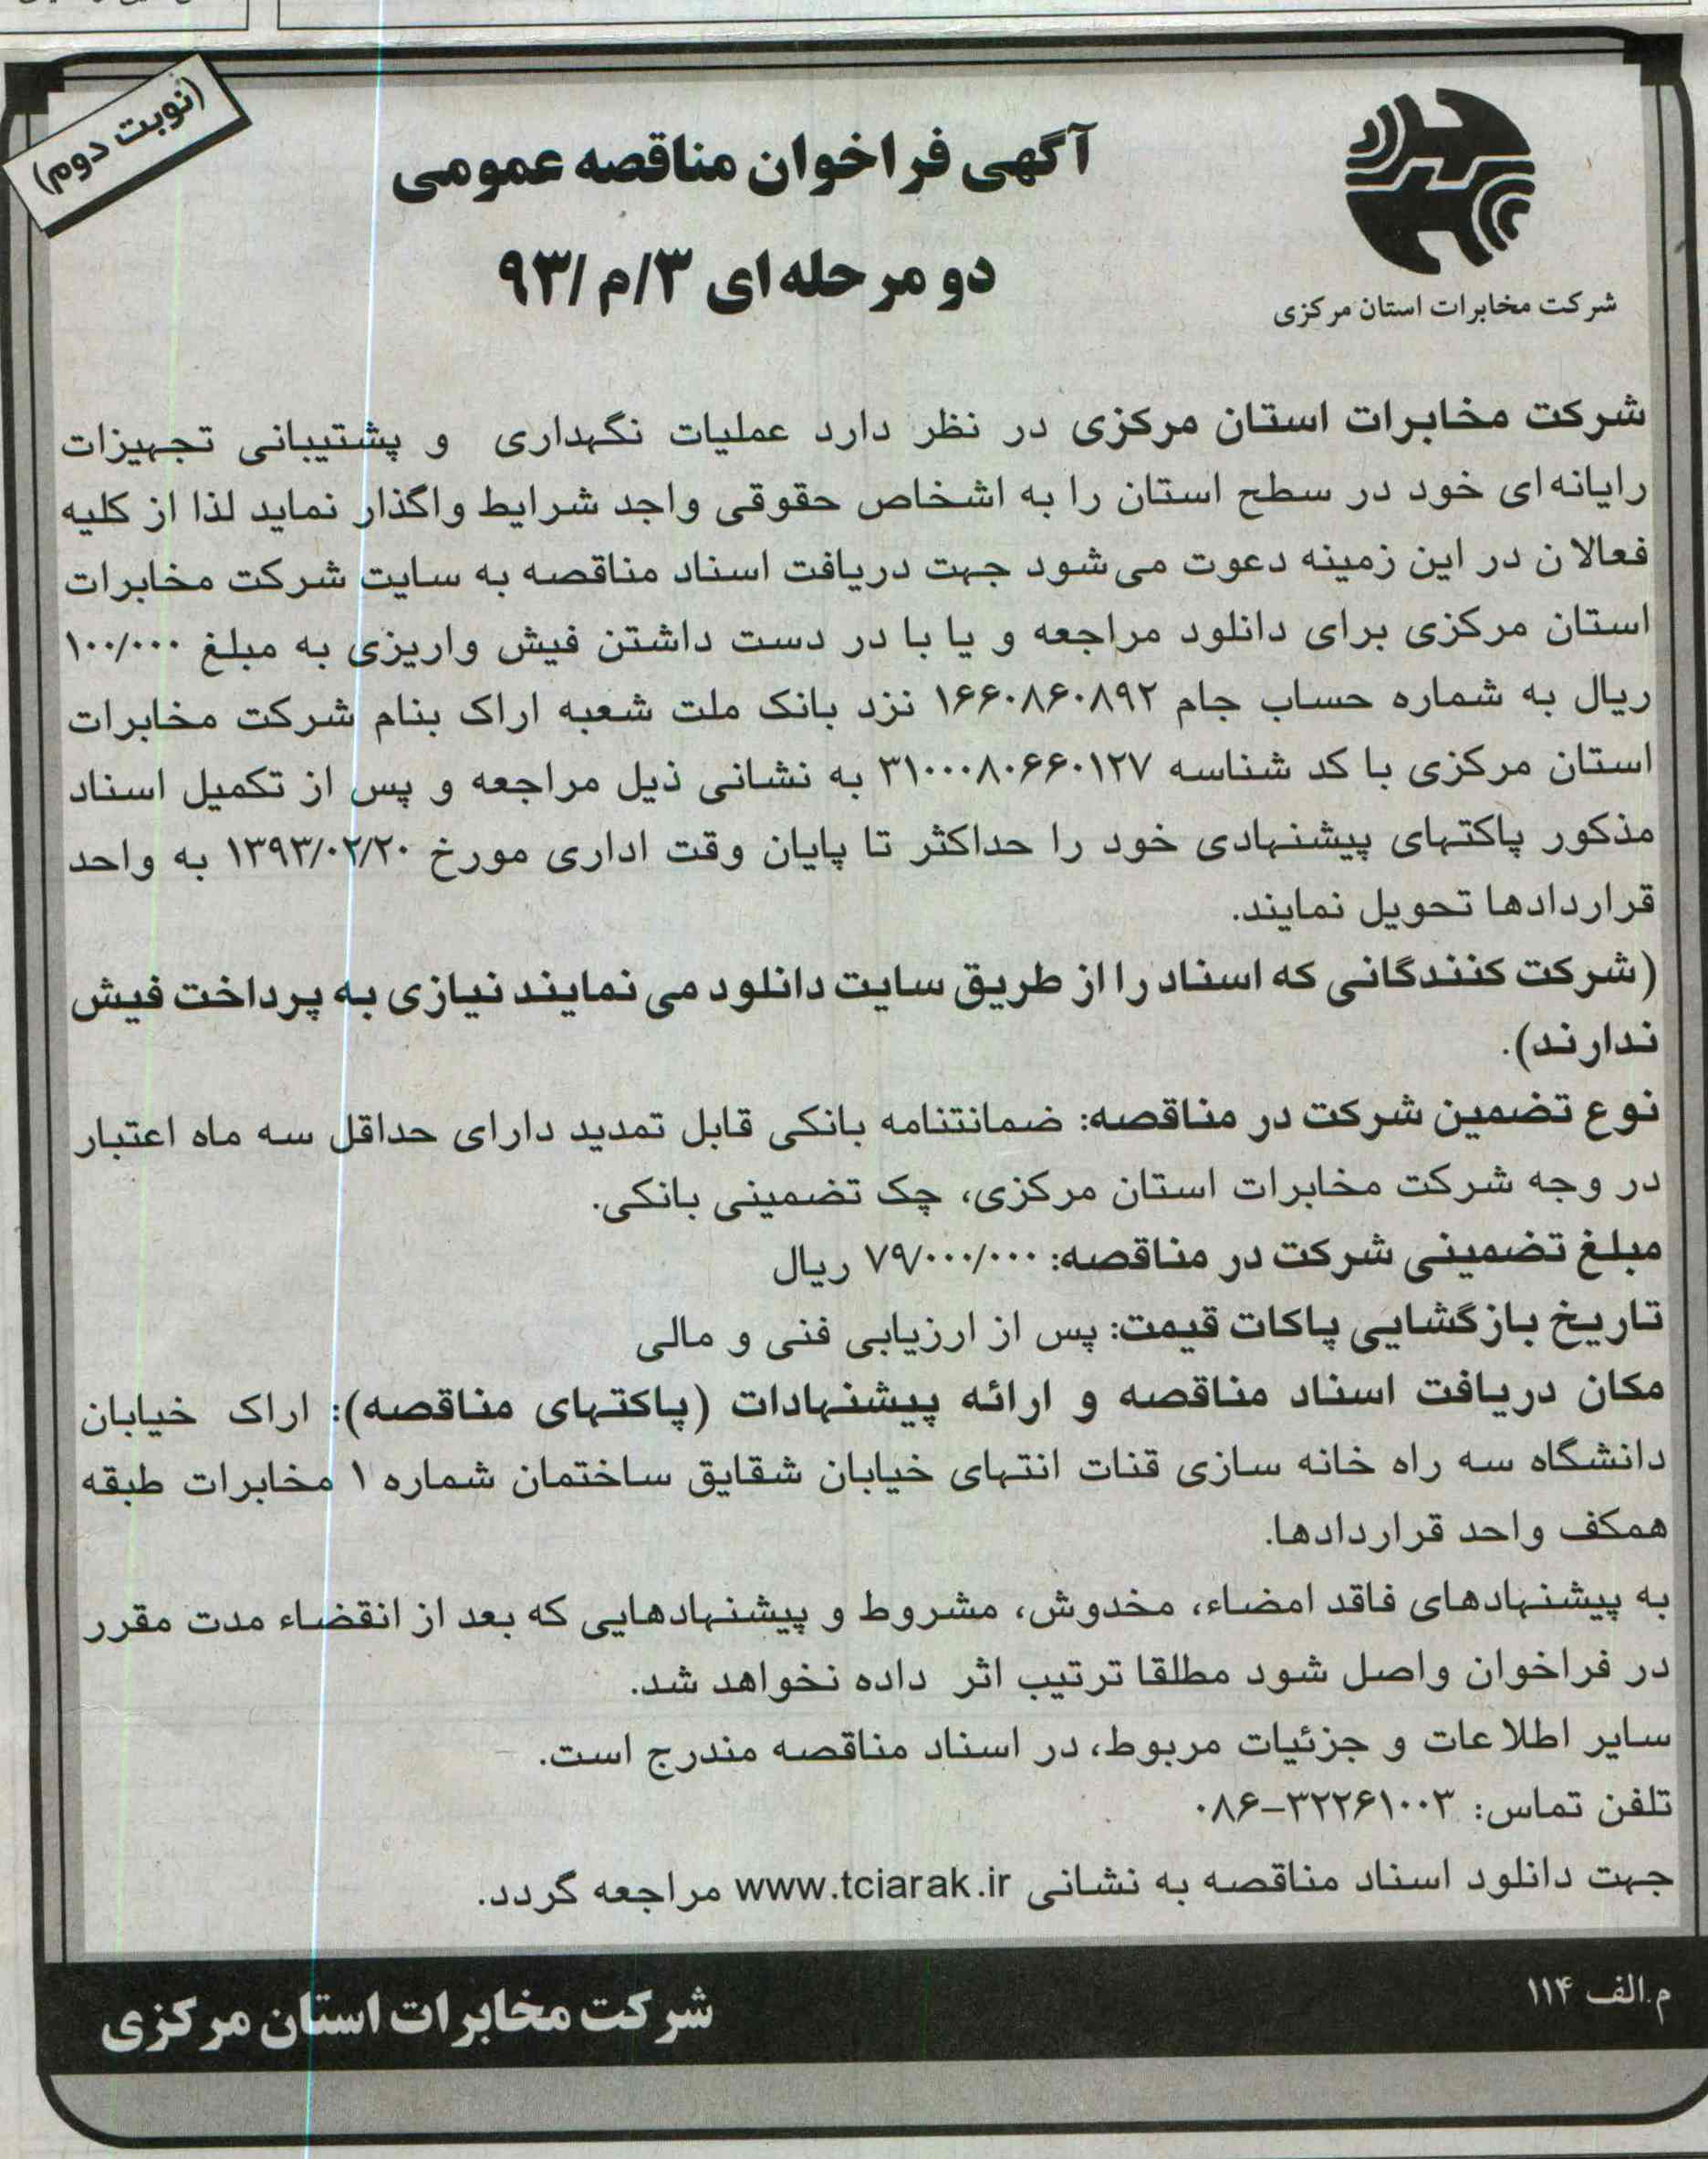 (نوبت دوم)
آگهی فراخوان مناقصه عمومی
دو مرحله‌ای ۳/م/۹۳
شرکت مخابرات استان مرکزی
شرکت مخابرات استان مرکزی در نظر دارد عملیات نگهداری و پشتیبانی تجهیزات
رایانه‌ای خود در سطح استان را به اشخاص حقوقی واجد شرایط واگذار نماید لذا از کلیه
فعالان در این زمینه دعوت می‌شود جهت دریافت اسناد مناقصه به سایت شرکت مخابرات
استان مرکزی برای دانلود مراجعه و یا با در دست داشتن فیش واریزی به مبلغ ۱۰۰/۰۰۰
ریال به شماره حساب جام ۱۶۶۰۸۶۰۸۹۲ نزد بانک ملت شعبه اراک بنام شرکت مخابرات
استان مرکزی با کد شناسه ۳۱۰۰۰۸۰۶۶۰۱۲۷ به نشانی ذیل مراجعه و پس از تکمیل اسناد
مذکور پاکتهای پیشنهادی خود را حداکثر تا پایان وقت اداری مورخ ۱۳۹۳/۰۲/۲۰ به واحد
قراردادها تحویل نمایند.
(شرکت کنندگانی که اسناد را از طریق سایت دانلود می نمایند نیازی به پرداخت فیش
ندارند).
نوع تضمین شرکت در مناقصه: ضمانتنامه بانکی قابل تمدید دارای حداقل سه ماه اعتبار
در وجه شرکت مخابرات استان مرکزی، چک تضمینی بانکی.
مبلغ تضمینی شرکت در مناقصه: ۷۹/۰۰۰/۰۰۰ ریال
تاریخ بازگشایی پاکات قیمت: پس از ارزیابی فنی و مالی
مکان دریافت اسناد مناقصه و ارائه پیشنهادات (پاکتهای مناقصه): اراک خیابان
دانشگاه سه راه خانه سازی قنات انتهای خیابان شقایق ساختمان شماره ۱ مخابرات طبقه
همکف واحد قراردادها.
به پیشنهادهای فاقد امضاء، مخدوش، مشروط و پیشنهادهایی که بعد از انقضاء مدت مقرر
در فراخوان واصل شود مطلقا ترتیب اثر داده نخواهد شد.
سایر اطلاعات و جزئیات مربوط، در اسناد مناقصه مندرج است.
تلفن تماس: ۳۲۲۶۱۰۰۳-۰۸۶
جهت دانلود اسناد مناقصه به نشانی www.tciarak.ir مراجعه گردد.
م.الف ۱۱۴
شرکت مخابرات استان مرکزی